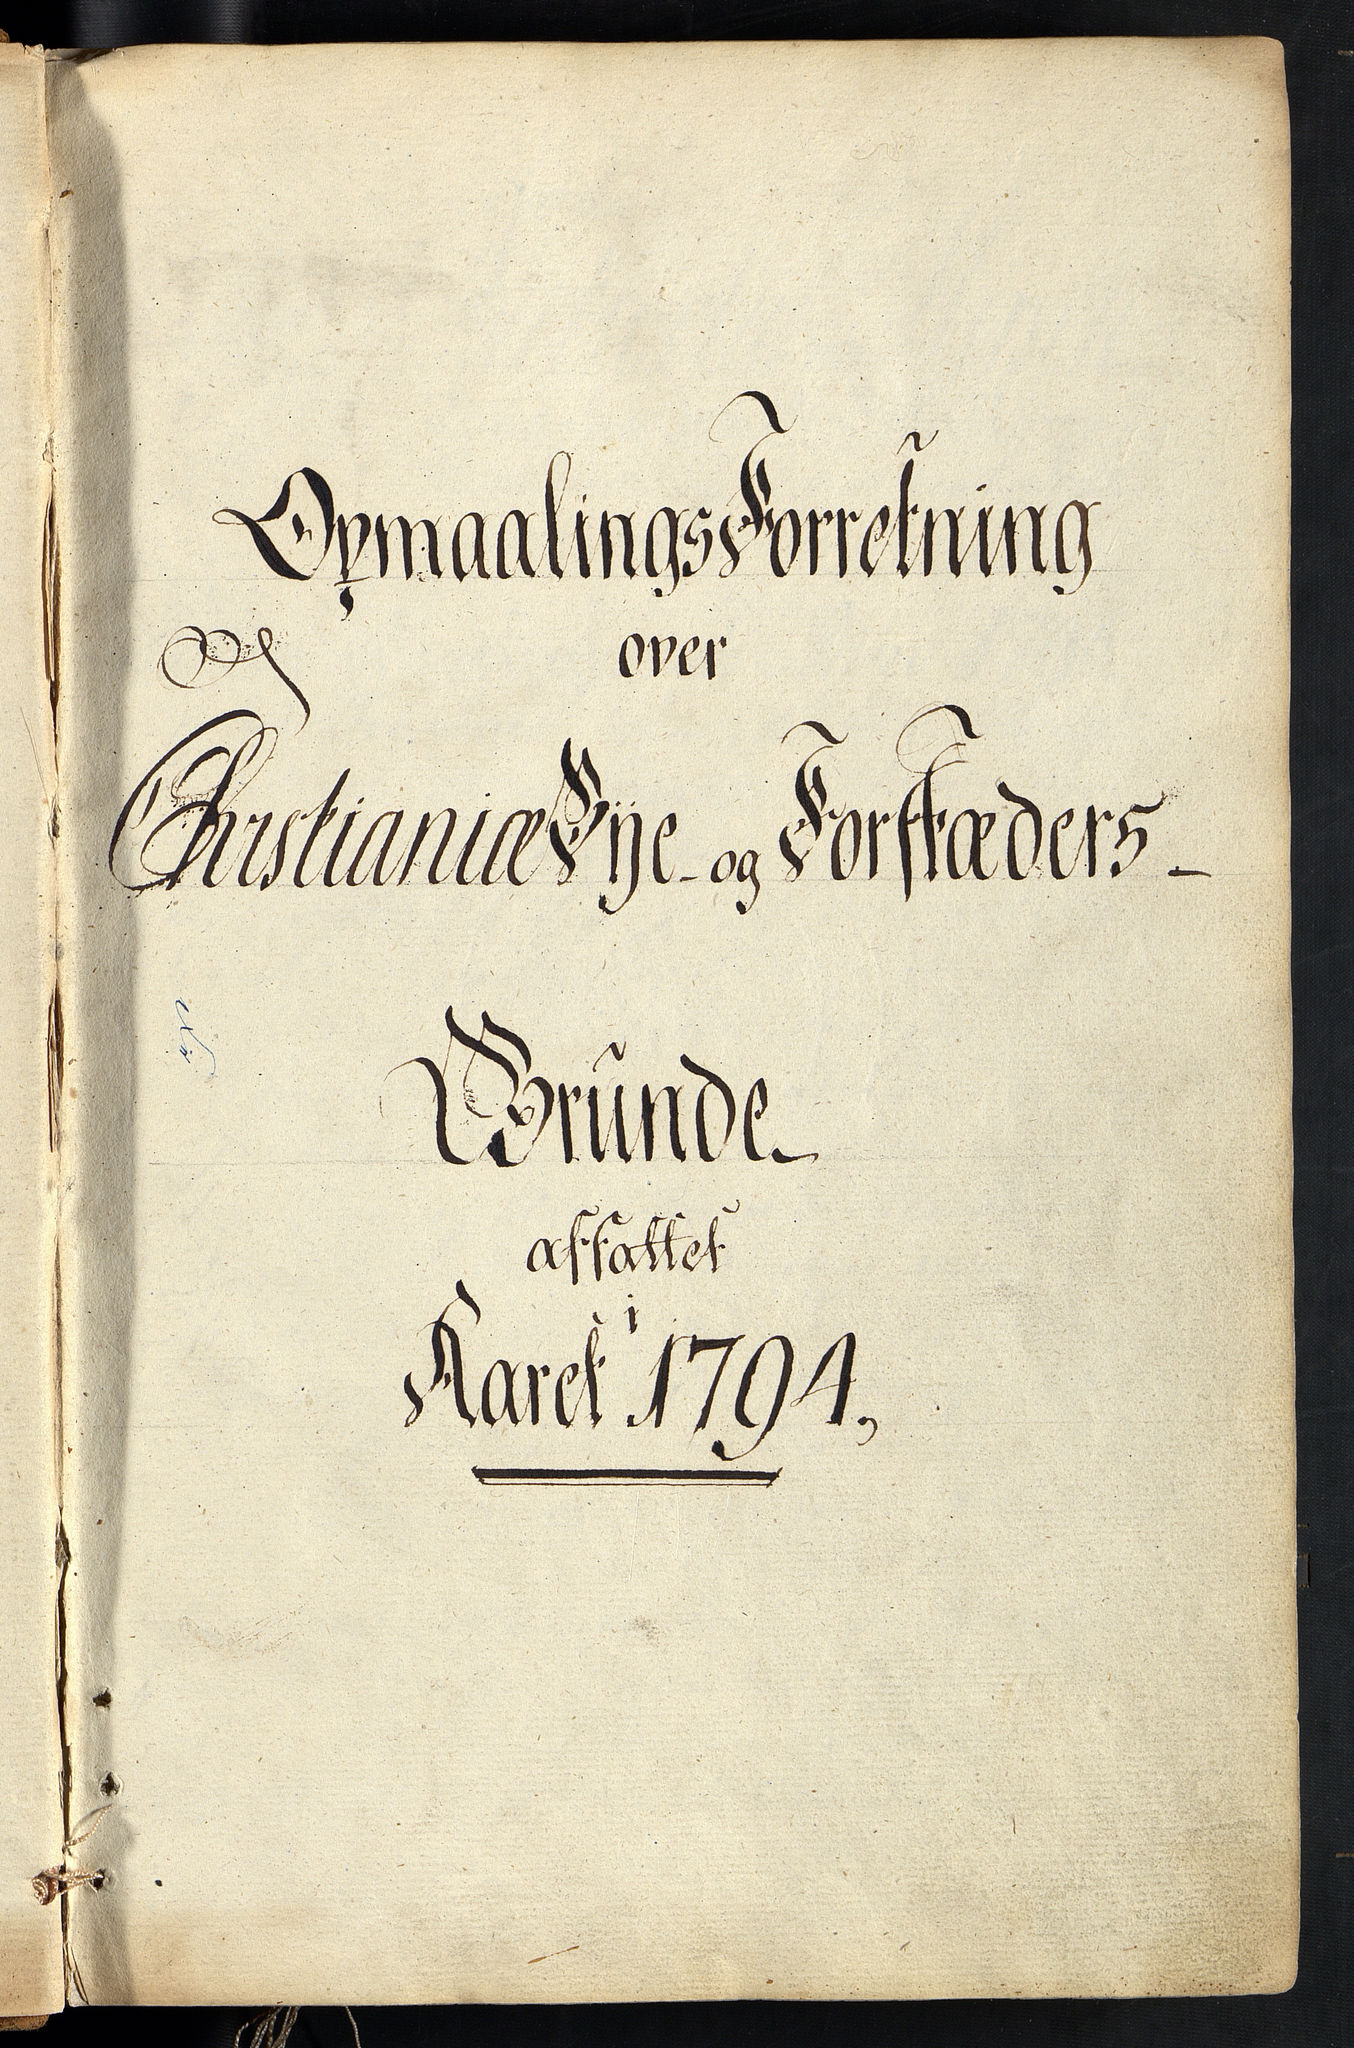 OpmaalingsForretning
over
Christianiæ Bye- og Forstæders-
Grunde
affattet
i
Aaret 1794,